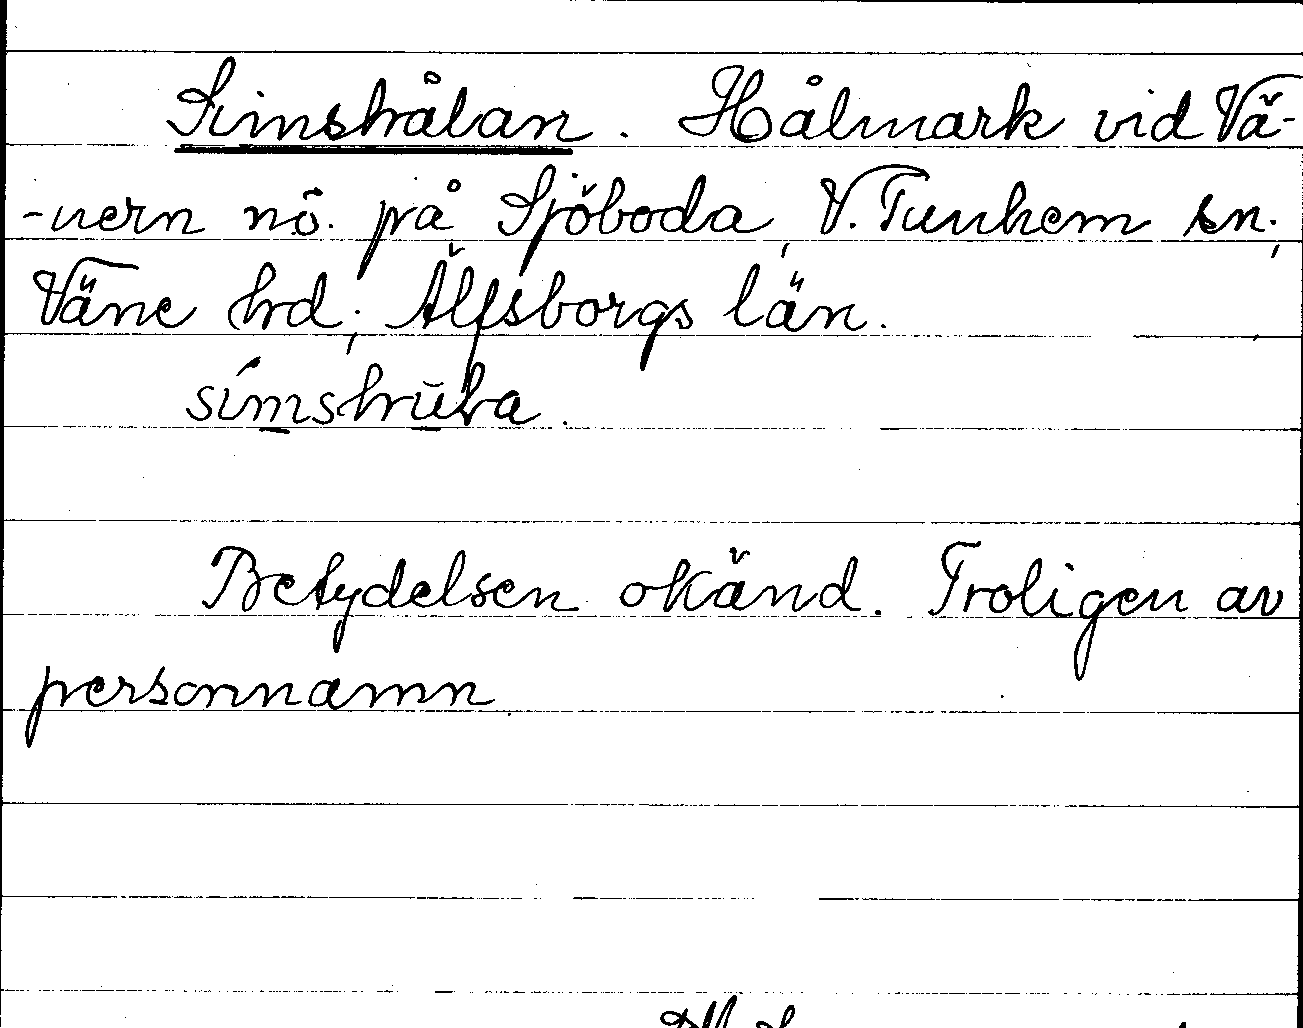 Simshålan. Hålmark vid Vä-
-nern nö. på Sjöboda, V. Tunhem sn.,
Väne hd, Älfsborgs län.
simshula.
Betydelsen okänd. Troligen av
personnamn.